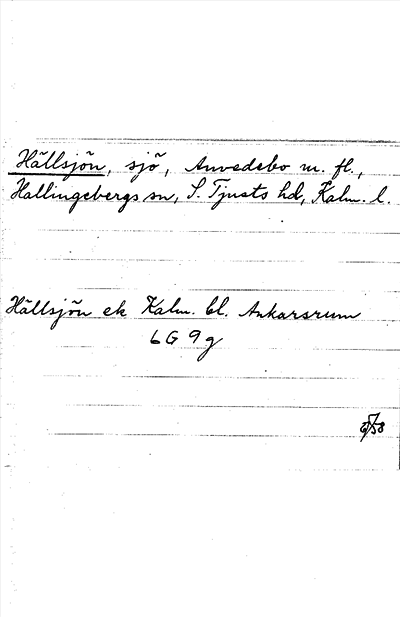 Hällsjön, sjö, Anvedebo m. fl.,
Hallingebergs sn, S. Tjusts hd, Kalm. l.
Hällsjön ek Kalm. bl. Ankarsrum
6G 9g